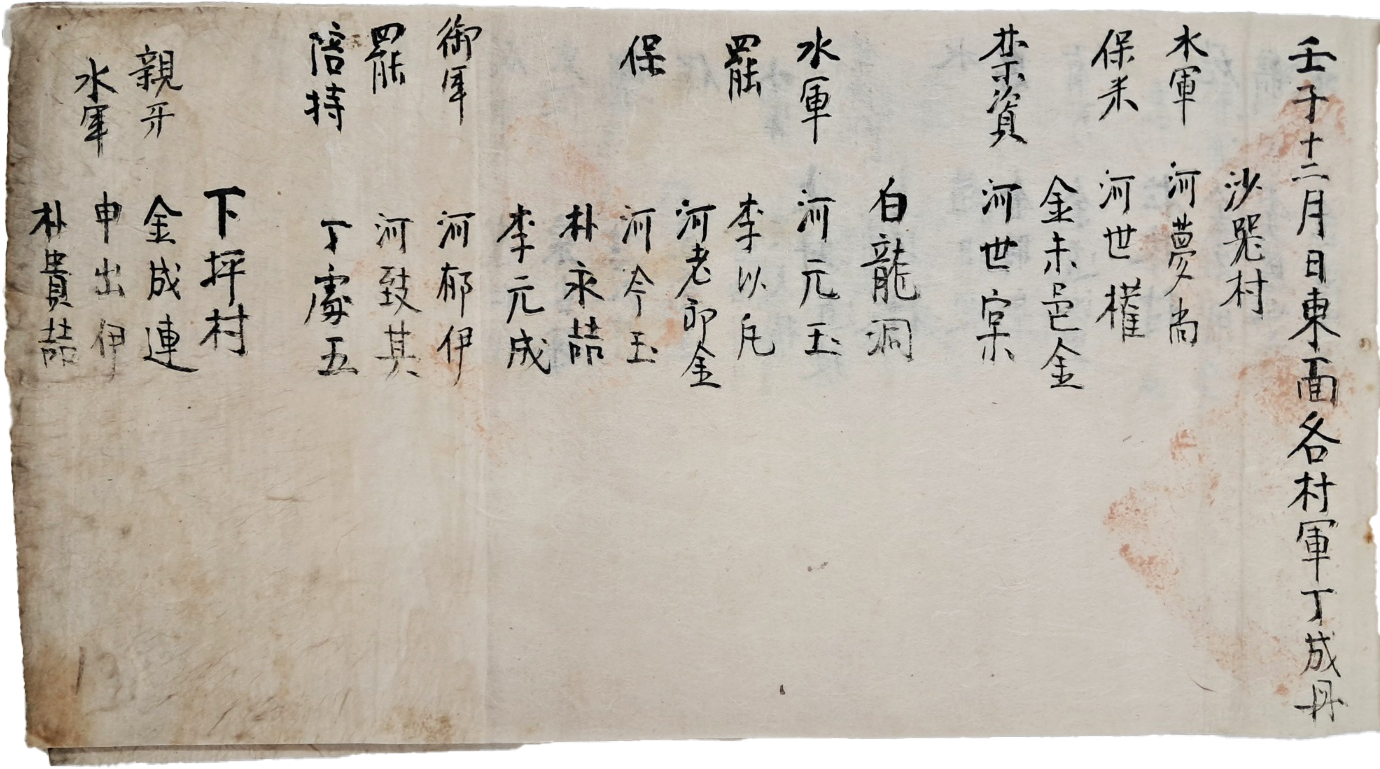 壬子十二月日東面各村軍丁成册
沙器村
水軍 河夢尚
保米 河世權
金未邑金
禁資 河世宗
白龍洞
水軍 河元玉
罷 李以凡
河老郎金
保 河今玉
朴永喆
李元成
御軍 河郁伊
罷 河致其
陪持 丁處五
下坪村
親牙 金成連
水軍 申出伊
朴貴喆